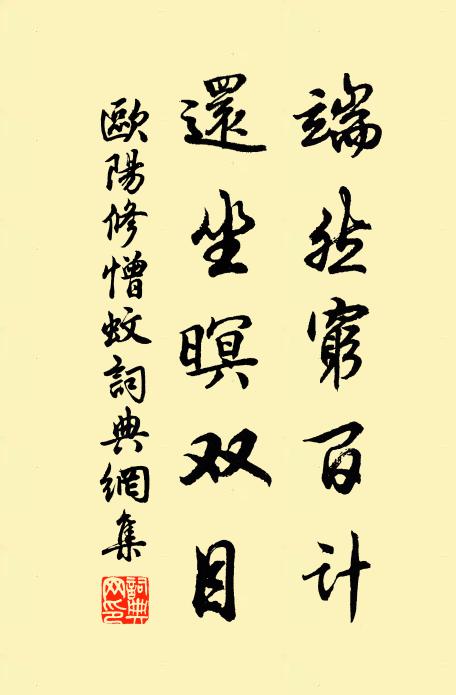 端然窮百计
還坐暝双目
歐陽修憎蚊詞典網集
詞典网印